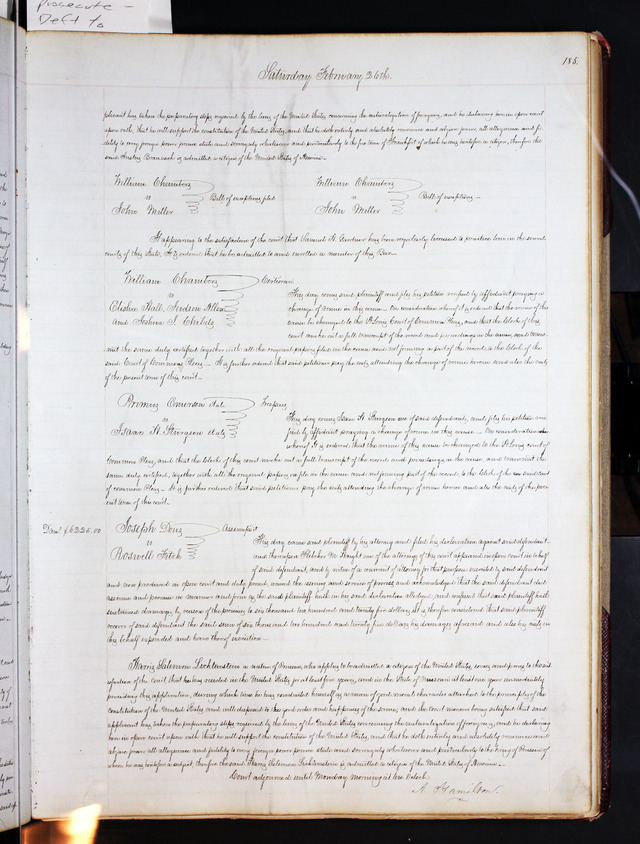 prosecute -
Deft to
185.
Saturday February 26th.
plicant has taken the preparatory steps required by the laws of the United States concerning the naturalization of foreigners, and he declaring here in open court
upon oath, that he will support the constitution of the United States, and that he doth entirely and absolutely renounce and abjure forever, all allegiance and fi-
delity to any foreign power prince state and sovereignty whatsoever and particularly to the free town of Frankfort of which he was heretofore a citizen, therefore the
said is admitted a citizen of the United States of America.
William Chambers
vs
John Miller
Bill of exceptions filed
William Chambers
vs
John Miller
Bill of exceptions
It appearing to the satisfaction of the court that Samuel H. has been regularly licensed to practice law in the several
courts of this State, It is ordered that he be admitted to and enrolled a member of this Bar.
William Chambers
vs
Elisha Hall, Allen
and Joshua
Certiorari
This day comes said plaintiff and files his petition verified by affidavit praying a
change of venue in this cause. On consideration whereof it is ordered that the venue of this
cause be changed to the St. Louis Court of Common Pleas, and that the clerk of this
court make out a full transcript of the record and proceedings in the cause, and trans-
mit the same duly certified together with all the original papers filed in the cause and not forming a part of the record, to the clerk of the
said Court of Common Pleas. It is further ordered that said petitioner pay the costs attending the change of venue herein and also the costs
of the present term of this court.
vs
Isaac H. Sturgeon et als
Trespass
This day comes Isaac H. Sturgeon one of said defendants, and files his petition veri-
fied by affidavit praying a change of venue in this cause. On consideration
whereof It is ordered that the venue of this cause be changed to the St. Louis court of
Common Pleas, and that the clerk of this court make out a full transcript of the record and proceedings in the cause, and transmit the
same duly certified, together with all the original papers on file in the cause and not forming part of the record, to the clerk of the said court
of common Pleas. It is further ordered that said petitioner pay the costs attending the change of venue herein and also the costs of the pres-
ent term of this court.
Dam's $6225.00
Joseph
vs
Roswell Fitch
Assumpsit
This day came said plaintiff by his attorney and filed his declaration against said defendant
and thereupon one of the attorneys of this court appeared in open court in behalf
of said defendant, and by virtue of a warrant of attorney for that purpose executed by said defendant
and now produced in open court and duly proved, waived the issuing and service of process and acknowledged that the said defendant did
assume and promise in manner and form as the said plaintiff hath in his said declaration alleged, and confessed that said plaintiff hath
sustained damages by reason of the premises to six thousand two hundred and twenty five dollars, it is therefore considered that said plaintiff
recover of said defendant the said sum of six thousand two hundred and twenty five dollars his damages aforesaid and also his costs in
this behalf expended and have thereof execution.
Harris Solomon Lichtenstein a native of Prussia, who applies to be admitted a citizen of the United States, comes and proves to the sat-
isfaction of the Court that he has resided in the United States for at least five years, and in the State of Missouri at least one year immediately
preceding this application, during which time he has conducted himself as a man of good moral character attached to the principles of the
constitution of the United States and well disposed to the good order and happiness of the same, and the court moreover being satisfied that said
applicant has taken the preparatory steps required by the laws of the United States concerning the naturalization of foreigners, and he declaring
here in open court upon oath that he will support the constitution of the United States, and that he doth entirely and absolutely renounce and
abjure forever all allegiance and fidelity to any foreign power prince state and sovereignty whatsoever and particularly to the King of Prussia of
whom he was heretofore a subject, therefore the said Harris Solomon Lichtenstein is admitted a citizen of the United States of America.
Court adjourned until Monday morning at ten o'clock.
A. Hamilton.